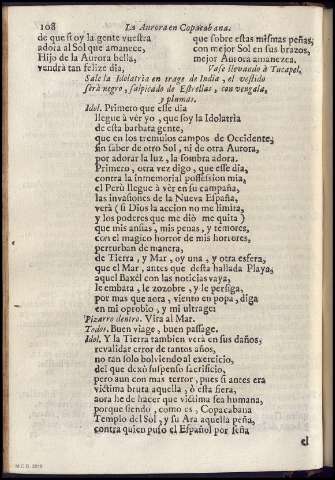 108
La Aurora en Copacabana.
de que ſi oy la gente vueſtra
adora al Sol que amanece,
Hijo de la Aurora bella,
vendrà tan felize dia,
que ſobre eſtas miſmas peñas,
con mejor Sol en ſus brazos,
mejor Aurora amanezca.
Vaſe llevando à Tucapel,
Sale la Idolatria en trage de India, el veſtido
ſerà negro, ſalpicado de Eſtrellas, con vengala,
y plumas.
Idol. Primero que eſſe dia
llegue à vèr yo, que ſoy la Idolatria
de eſta barbara gente,
que en los tremulos campos de Occidente,
ſin ſaber de otro Sol, ni de otra Aurora,
por adorar la luz, la ſombra adora.
Primero, otra vez digo, que eſſe dia,
contra la inmemorial poſſeſsion mia,
el Perù llegue à vèr en ſu campaña,
las invaſiones de la Nueva Eſpaña,
verà (ſi Dios la accion no me limita,
y los poderes que me diò me quita)
que mis anſias, mis penas, y temores,
con el magico horror de mis horrores,
perturban de manera,
de Tierra, y Mar, oy una, y otra esfera,
que el Mar, antes que deſta hallada Playa,
aquel Baxèl con las noticias vaya,
le embata, le zozobre, y le perſiga,
por mas que aora, viento en popa, diga
en mi oprobio, y mi ultrage:
Pizarro dentro. Vira al Mar.
Todos. Buen viage, buen paſſage.
Idol. Y la Tierra tambien verà en ſus daños,
revalidar error de tantos años,
no tan ſolo bolviendo al exercicio,
del que dexò ſuſpenſo ſacrificio,
pero aun con mas terror, pues ſi antes era
victima bruta aquella, ò eſta fiera,
aora he de hacer que victima ſea humana,
porque ſiendo, como es, Copacabana
Templo del Sol, y ſu Ara aquella peña,
contra quien puſo el Eſpañol por ſeña
el